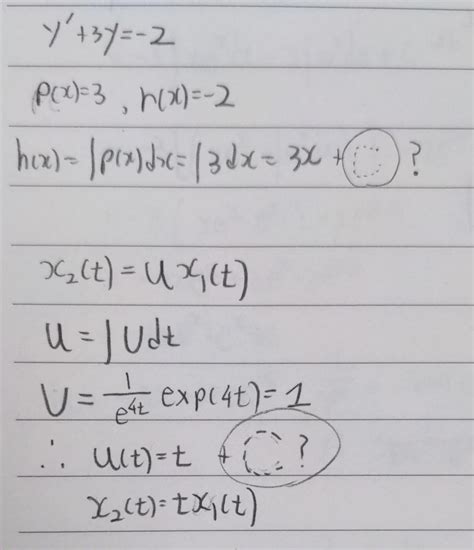 y′+3y=-2
p(x)=3, r(x)=-2
h(x)=∫p(x)dx=∫3dx=3x+C?
x₂(t)=ux₁(t)
u=∫Udt
U=1/e^{4t} exp(4t)=1
∴ u(t)=t+C?
x₂(t)=tx₁(t)